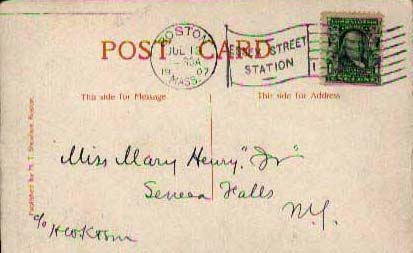 BOSTON
JUL 1
19 07
MASS.
ESSEX STREET
STATION
1
POST CARD
This side for Message
This side for Address
Miss Mary Henry "Jr"
Seneca Falls
N.Y.
c/o
Published by M. T. Sheahan, Boston.